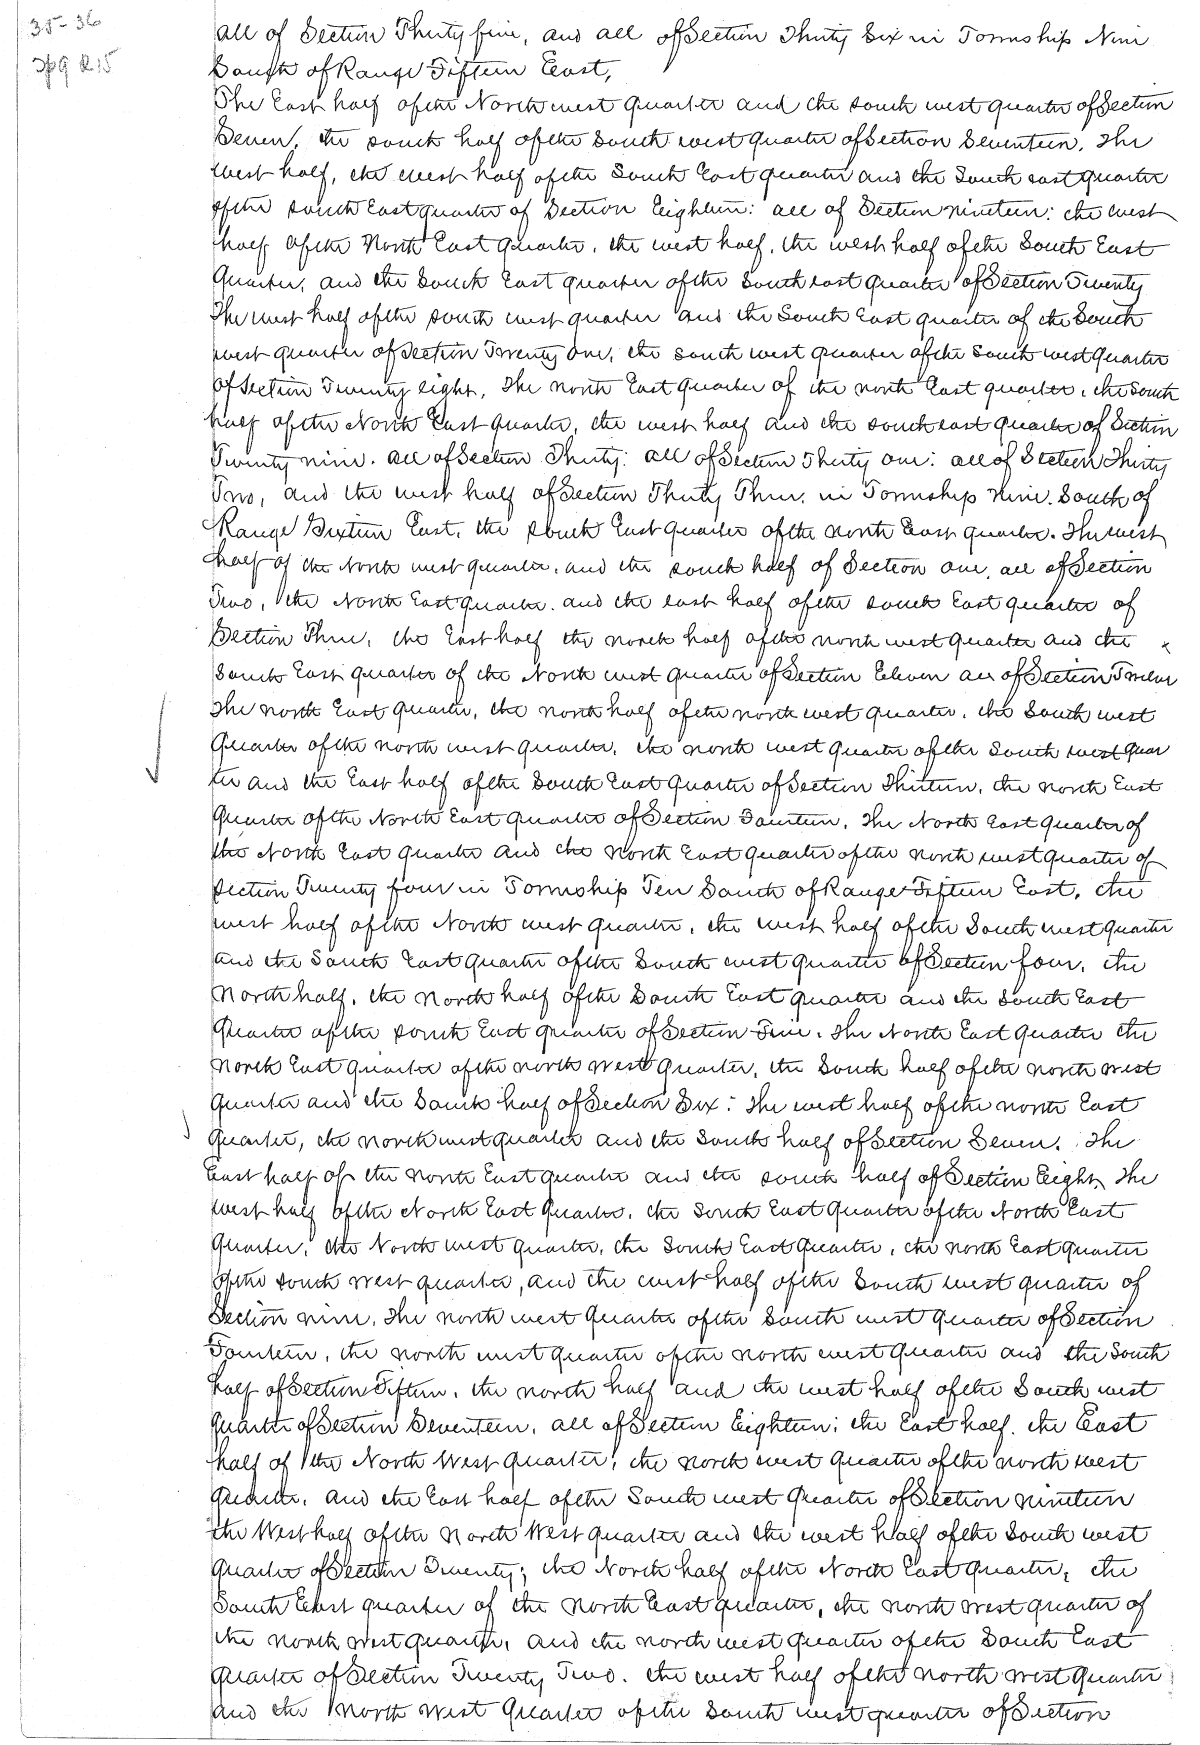 35-36
all of Section Thirty five, and all of Section Thirty Six in Township Nine
South of Range Fifteen East,
The East half of the North west quarter and the south west quarter of Section
Seven, the south half of the South west quarter of Section Seventeen. The
west half, the west half of the South East quarter and the South east quarter
of the south East quarter of Section Eighteen: all of Section nineteen: the west
half of the North East quarter, the west half, the west half of the South East
Quarter, and the South East quarter of the South east quarter of Section Twenty
The west half of the south west quarter and the South East quarter of the South
west quarter of Section Twenty one, the south west quarter of the South west quarter
of Section Twenty eight, The north East quarter of the north East quarter, the South
half of the North East quarter, the west half and the south east quarter of Section
Twenty nine. all of Section Thirty: all of Section Thirty one: all of Section Thirty
Two, and the west half of Section Thirty Three, in Township nine. South of
Range Sixteen East, the south East quarter of the north East quarter. The west
half of the North west quarter, and the south half of Section one, all of Section
Two, the North East quarter. and the east half of the south East quarter of
Section Three, the East half the north half of the north west quarter and the
South East quarter of the North west quarter of Section Eleven all of Section Twelve
The north East quarter, the north half of the north west quarter, the South west
Quarter of the north west quarter, the north west quarter of the South west quar
ter and the East half of the South East quarter of Section Thirteen, the north East
Quarter of the North East quarter of Section Fourteen. The North East quarter of
the North East quarter and the North East quarter of the north west quarter of
Section Twenty four in Township Ten South of Range Fifteen East, the
west half of the North west quarter, the west half of the South west quarter
and the South East quarter of the South west quarter of Section four, the
North half, the north half of the South East quarter and the South East
Quarter of the south East quarter of Section Five. The North East quarter the
North East quarter of the north west quarter, the South half of the north west
Quarter and the South half of Section Six: The west half of the north East
Quarter, the north west quarter and the South half of Section Seven. The
East half of the North East quarter and the south half of Section Eight, The
west half of the North East quarter, the South East quarter of the North East
Quarter, the North west quarter, the South East quarter, the north East quarter
of the south west quarter, and the west half of the South west quarter of
Section nine, The north west quarter of the South west quarter of Section
Fourteen, the north west quarter of the north west quarter and the South
half of Section Fifteen, the north half and the west half of the South west
quarter of Section Seventeen, all of Section Eighteen; the East half. the East
half of the North West quarter, the north west quarter of the north west
Quarter, and the East half of the South west quarter of Section nineteen
the West half of the North West quarter and the west half of the South west
Quarter of Section Twenty; the North half of the North East quarter; the
South East quarter of the North East quarter, the north west quarter of
the north west quarter, and the north west quarter of the South East
Quarter of Section Twenty Two. the west half of the North west quarter
and the North West Quarter of the South west quarter of Section